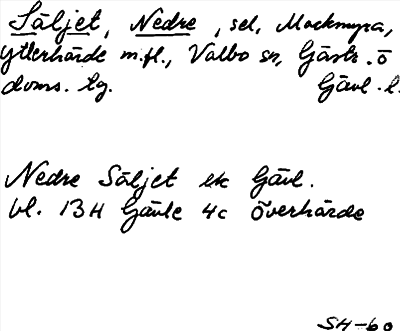 Säljet, Nedre, sel, Mackmyra,
Ytterhärde m.fl., Valbo sn, Gästr. ö
doms. lg. Gävl. l.
Nedre Säljet ek Gävl.
bl. 13H Gävle 4c Överhärde
SH-60